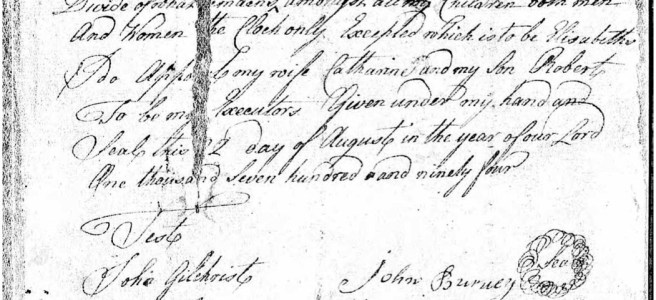 Divide of what remains amongst all my Children both men
And Women the Clock only Excepted which is to be Elisabeths
I do Appoint my wife Catharine and my son Robert
To be my Executors Given under my hand and
Seal this 12 day of August in the year of our Lord
One thousand seven hundred and ninety four
Test
John Gilchrist John Burney Seal